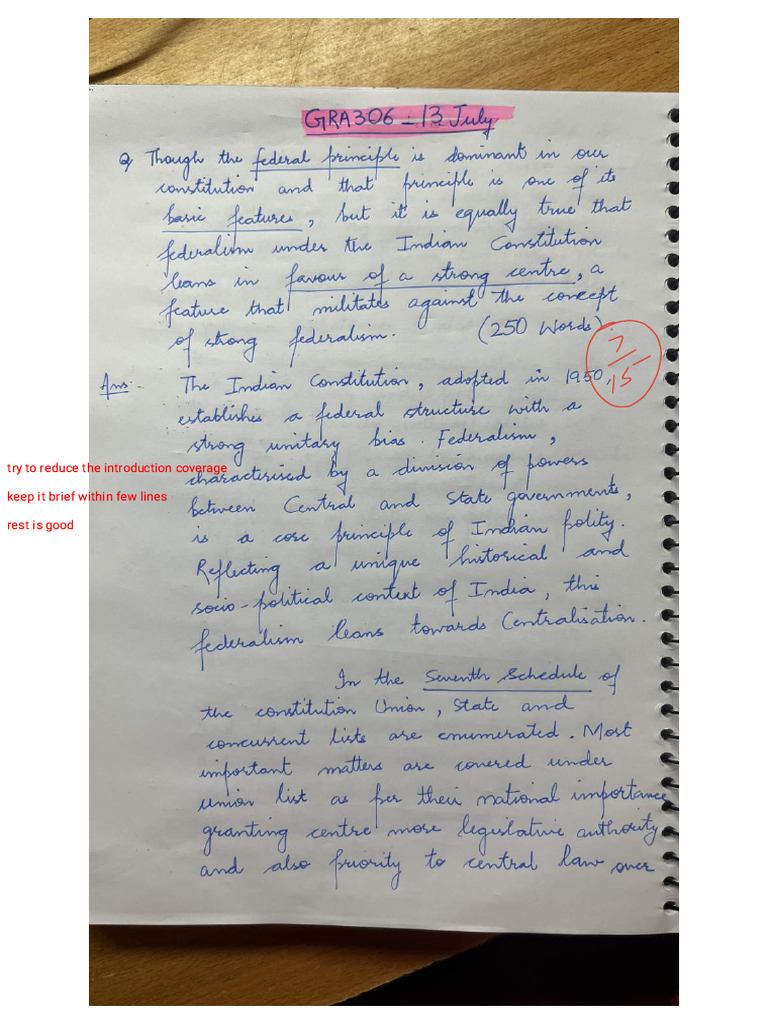 GRA306 - 13 July
Q Though the federal principle is dominant in our
constitution and that principle is one of its
basic features, but it is equally true that
federalism under the Indian Constitution
leans in favour of a strong centre, a
feature that militates against the concept
of strong federalism. (250 Words).
7/15
Ans:- The Indian Constitution, adopted in 1950,
establishes a federal structure with a
strong unitary bias. Federalism,
try to reduce the introduction coverage
characterised by a division of powers
keep it brief within few lines
between Central and State governments,
rest is good
is a core principle of Indian polity.
Reflecting a unique historical and
socio-political context of India, this
federalism leans towards Centralisation.
In the Seventh Schedule of
the constitution Union, State and
concurrent lists are enumerated. Most
important matters are covered under
union list as per their national importance
granting centre more legislative authority
and also priority to central law over